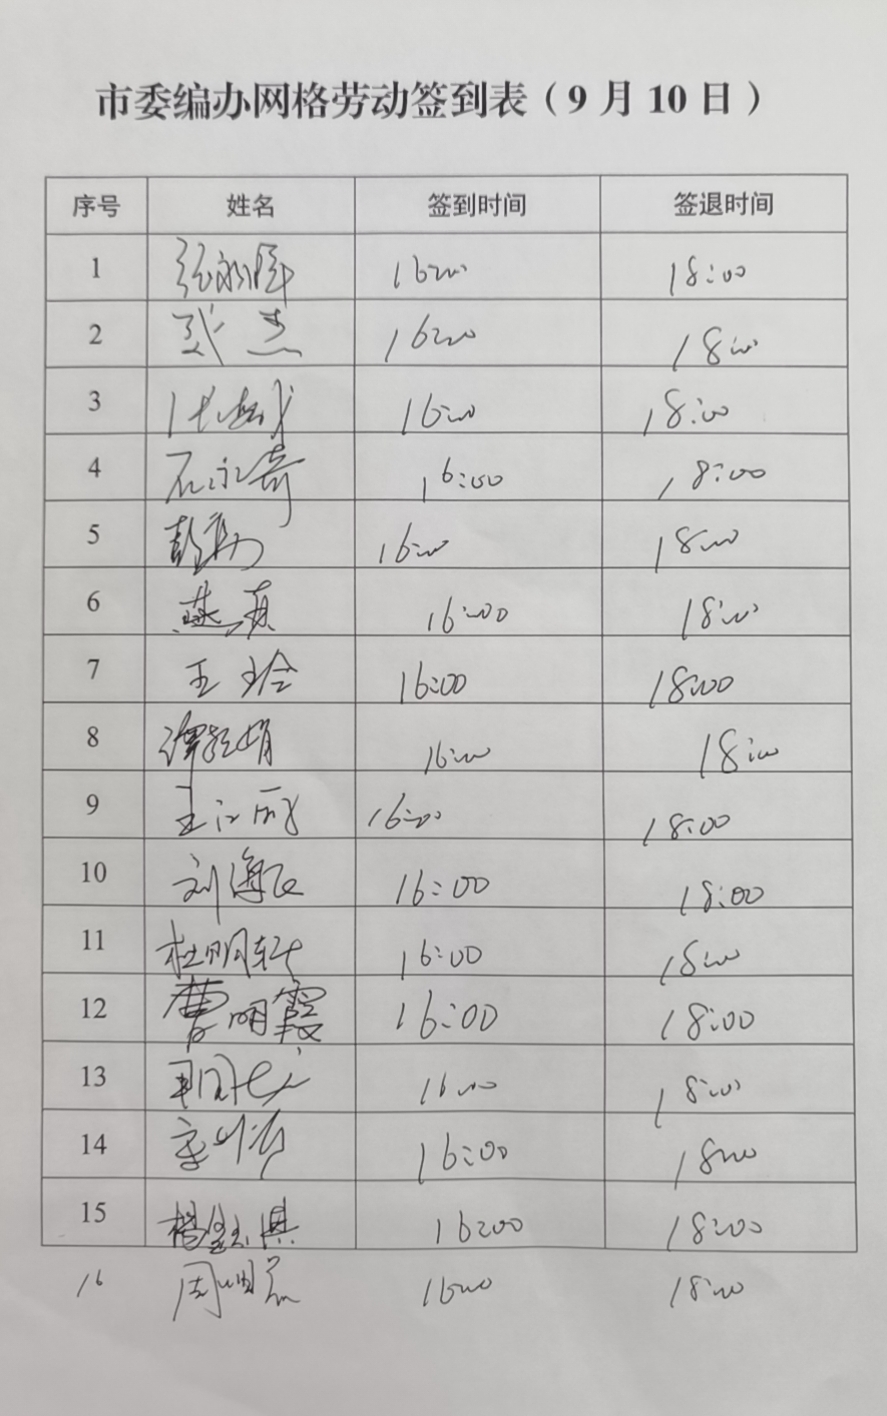 市委编办网格劳动签到表（9月10日）
序号 姓名 签到时间 签退时间
1 16:00 18:00
2 16:00 18:00
3 16:00 18:00
4 石永奇 16:00 18:00
5 16:00 18:00
6 燕 16:00 18:00
7 王玲 16:00 18:00
8 谭 娟 16:00 18:00
9 王 16:00 18:00
10 刘海 16:00 18:00
11 杜明轩 16:00 18:00
12 曹明霞 16:00 18:00
13 16:00 18:00
14 李 16:00 18:00
15 杨 琪 16:00 18:00
16 周 16:00 18:00